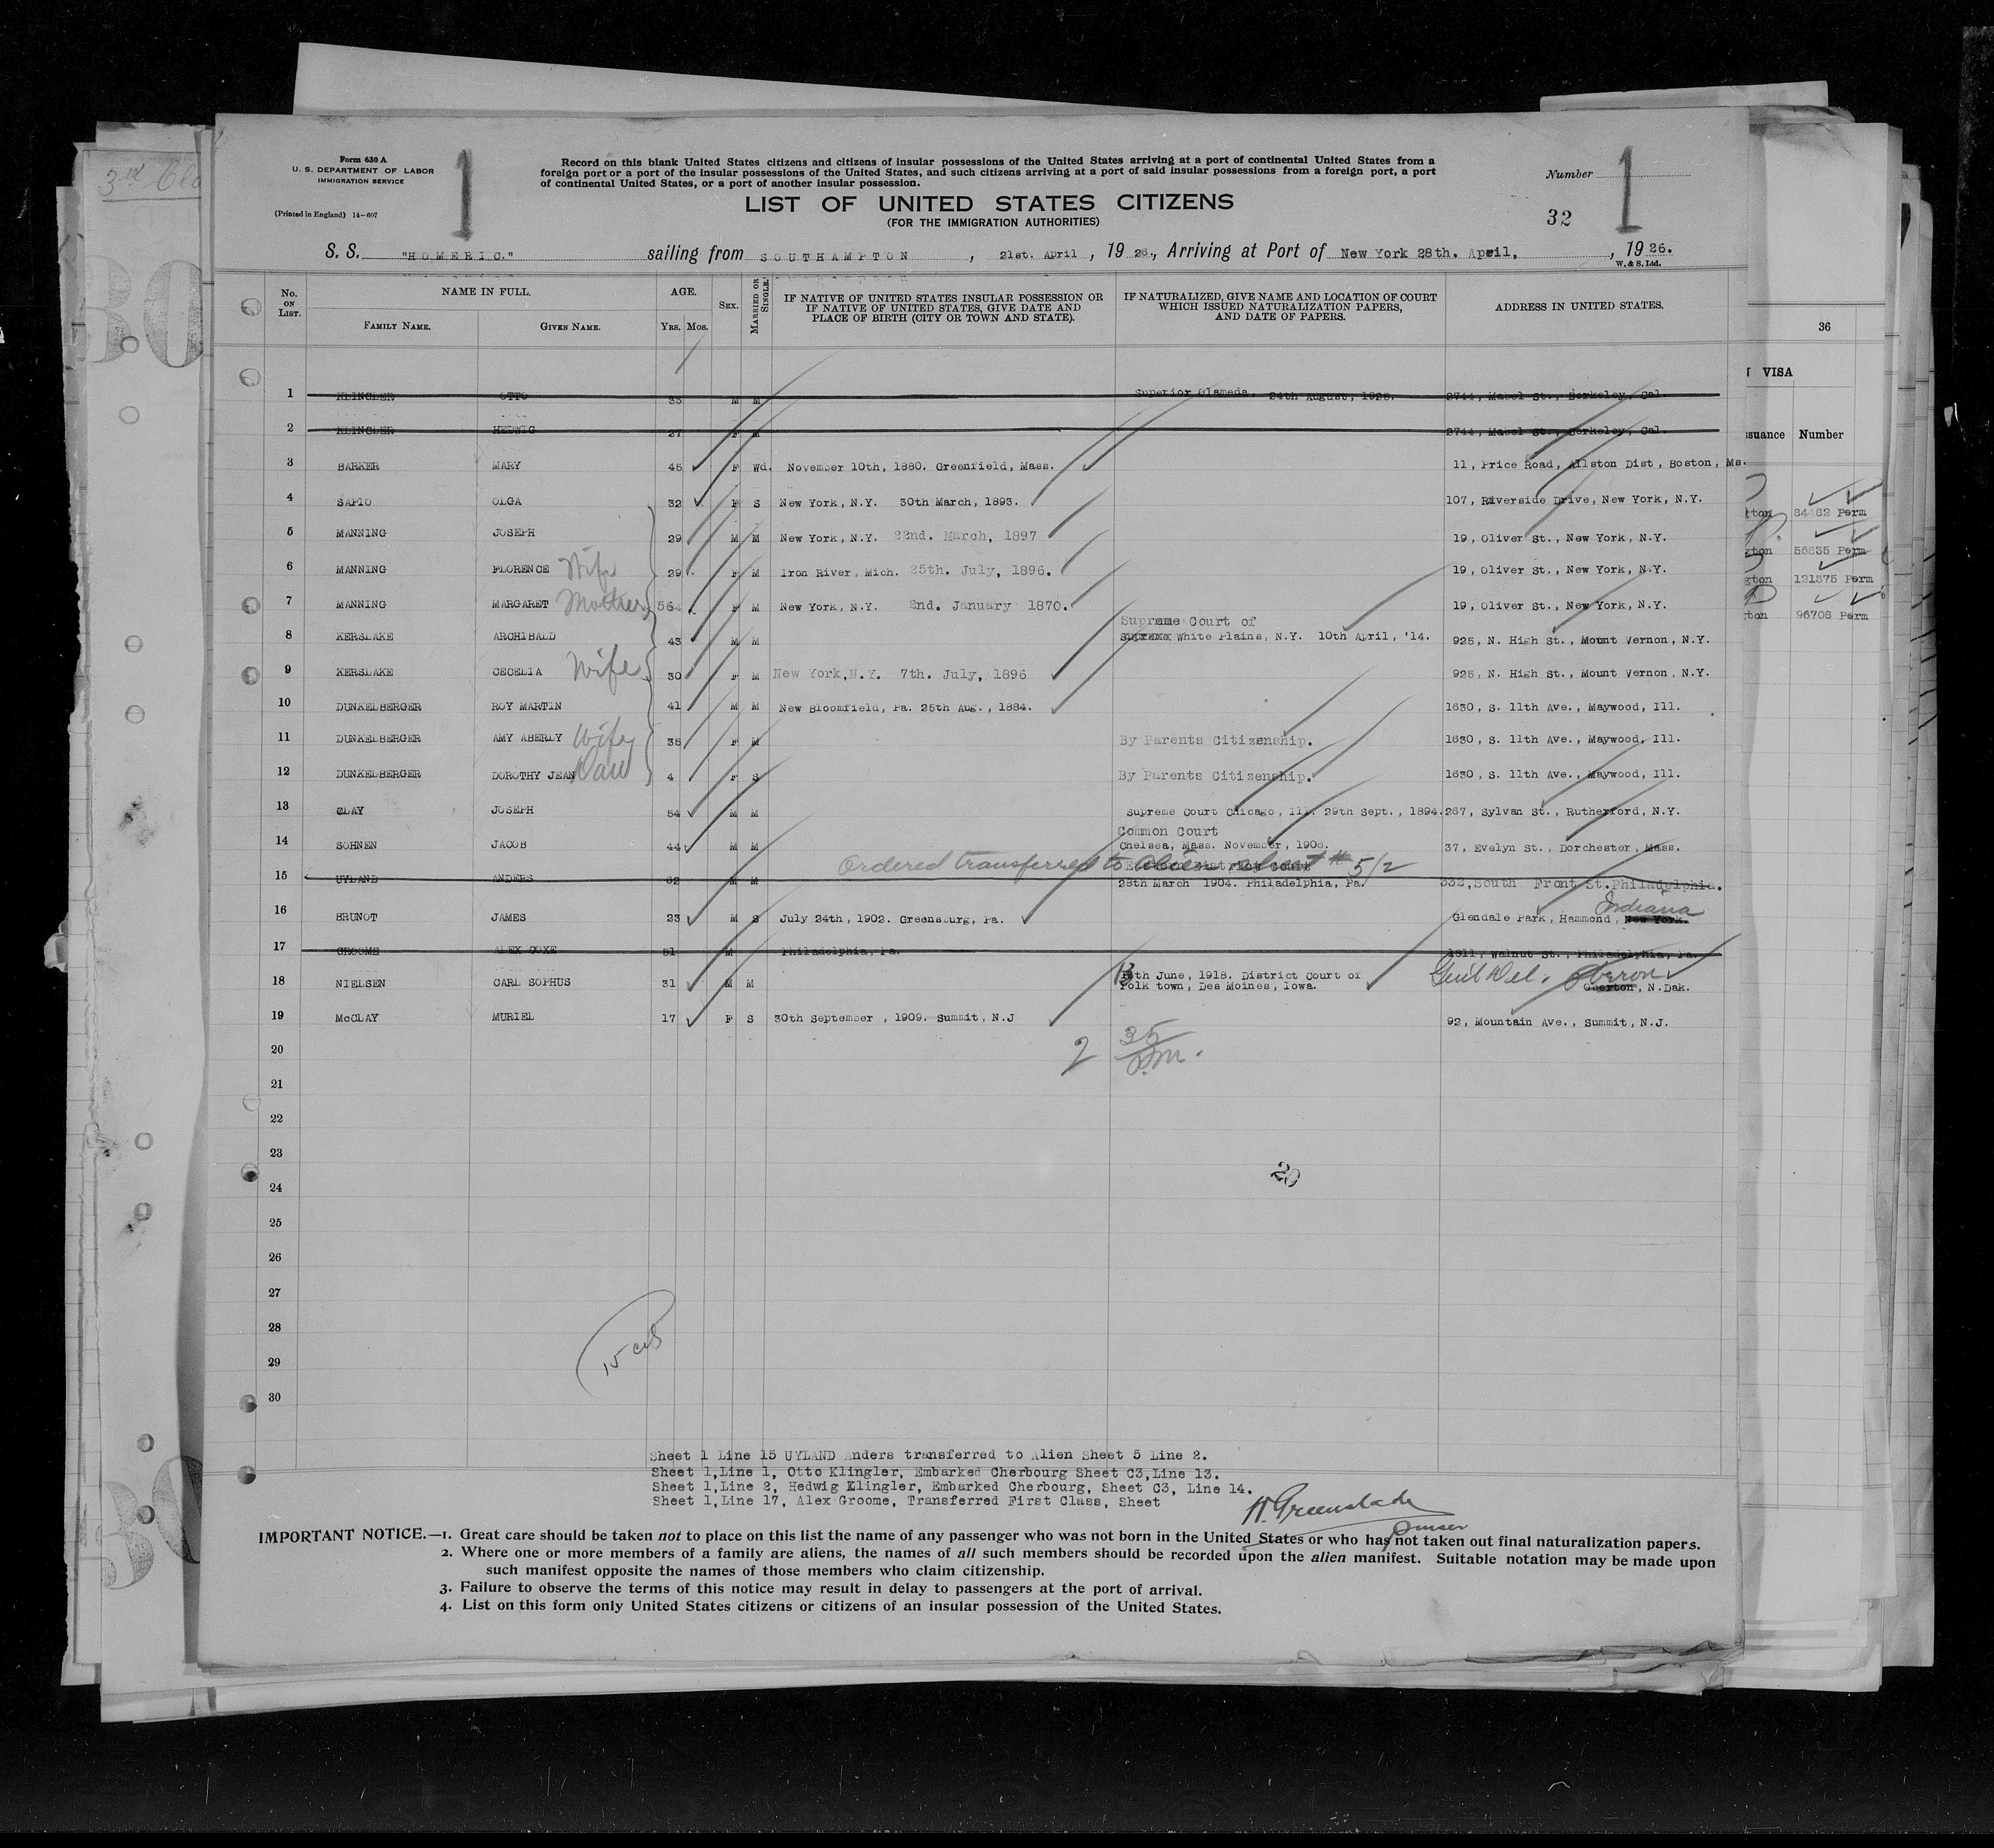 3rd Cla
Form 630 A
U. S. DEPARTMENT OF LABOR
IMMIGRATION SERVICE
(Printed in England) 14-607
1
Record on this blank United States citizens and citizens of insular possessions of the United States arriving at a port of continental United States from a
foreign port or a port of the insular possessions of the United States, and such citizens arriving at a port of said insular possessions from a foreign port, a port
of continental United States, or a port of another insular possession.
LIST OF UNITED STATES CITIZENS
(FOR THE IMMIGRATION AUTHORITIES)
Number
1
32
S. S. "HOMERIC." sailing from SOUTHAMPTON, 21st. April, 1926., Arriving at Port of New York 28th. April, , 1926.
W. & S. Ltd.
No. ON LIST. NAME IN FULL. FAMILY NAME. GIVEN NAME. AGE. Yrs. Mos. SEX. MARRIED OR SINGLE. IF NATIVE OF UNITED STATES INSULAR POSSESSION OR IF NATIVE OF UNITED STATES, GIVE DATE AND PLACE OF BIRTH (CITY OR TOWN AND STATE). IF NATURALIZED, GIVE NAME AND LOCATION OF COURT WHICH ISSUED NATURALIZATION PAPERS, AND DATE OF PAPERS. ADDRESS IN UNITED STATES.
1 KLINGLER OTTO 35 M M Superior Alameda. 24th August, 1925. 2744, Mabel St., Berkeley, Cal.
2 KLINGLER HEDWIG 27 F M 2744, Mabel St., Berkeley, Cal.
3 BARKER MARY 45 F Wd. November 10th, 1880. Greenfield, Mass. 11, Price Road, Allston Dist, Boston, Ms.
4 SAPIO OLGA 32 F S New York, N.Y. 30th March, 1893. 107, Riverside Drive, New York, N.Y.
5 MANNING JOSEPH 29 M M New York, N.Y. 22nd. March, 1897 19, Oliver St., New York, N.Y.
6 MANNING FLORENCE Wife 29 F M Iron River, Mich. 25th. July, 1896. 19, Oliver St., New York, N.Y.
7 MANNING MARGARET Mother 56 F M New York, N.Y. 2nd. January 1870. 19, Oliver St., New York, N.Y.
Supreme Court of
8 KERSLAKE ARCHIBALD 43 M M White Plains, N.Y. 10th April, '14. 925, N. High St., Mount Vernon, N.Y.
9 KERSLAKE CECELIA Wife 30 F M New York, N.Y. 7th. July, 1896 925, N. High St., Mount Vernon, N.Y.
10 DUNKELBERGER ROY MARTIN 41 M M New Bloomfield, Pa. 25th Aug., 1884. 1630, S. 11th Ave., Maywood, Ill.
11 DUNKELBERGER AMY ABERLY Wife 35 F M By Parents Citizenship. 1630, S. 11th Ave., Maywood, Ill.
12 DUNKELBERGER DOROTHY JEAN Dau 4 F S By Parents Citizenship. 1630, S. 11th Ave., Maywood, Ill.
13 CLAY JOSEPH 54 M M Supreme Court Chicago, Ill. 29th Sept., 1894. 267, Sylvan St., Rutherford, N.Y.
Common Court
14 SOHNEN JACOB 44 M M Chelsea, Mass. November, 1906. 37, Evelyn St., Dorchester, Mass.
Ordered transferred to Alien sheet # 5/2
15 UYLAND ANDERS 62 M M 28th March 1904. Philadelphia, Pa. 332, South Front St. Philadelphia.
Indiana
16 BRUNOT JAMES 23 M S July 24th, 1902. Greensburg, Pa. Glendale Park, Hammond, New York.
17 GROOME ALEX COXE 51 M Philadelphia, Pa. 1811, Walnut St., Philadelphia, Pa.
13th June, 1918. District Court of Oberon
18 NIELSEN CARL SOPHUS 31 M M Polk town, Des Moines, Iowa. N. Dak.
19 McCLAY MURIEL 17 F S 30th September, 1909. Summit, N.J 92, Mountain Ave., Summit, N.J.
20
2 35
P.M.
21
22
23
20
24
25
26
27
28
29
30
Sheet 1 Line 15 UYLAND Anders transferred to Alien Sheet 5 Line 2.
Sheet 1, Line 1, Otto Klingler, Embarked Cherbourg Sheet C3, Line 13.
Sheet 1, Line 2, Hedwig Klingler, Embarked Cherbourg, Sheet C3, Line 14.
Sheet 1, Line 17, Alex Groome, Transferred First Class, Sheet
H. Greenslade
Purser
IMPORTANT NOTICE.—1. Great care should be taken not to place on this list the name of any passenger who was not born in the United States or who has not taken out final naturalization papers.
2. Where one or more members of a family are aliens, the names of all such members should be recorded upon the alien manifest. Suitable notation may be made upon
such manifest opposite the names of those members who claim citizenship.
3. Failure to observe the terms of this notice may result in delay to passengers at the port of arrival.
4. List on this form only United States citizens or citizens of an insular possession of the United States.
36
VISA
suance Number
gton 84482 Perm
gton 56835 Perm
gton 121375 Perm
gton 96708 Perm